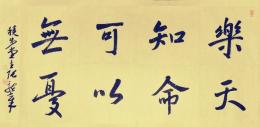 樂天
知命
可以
無憂